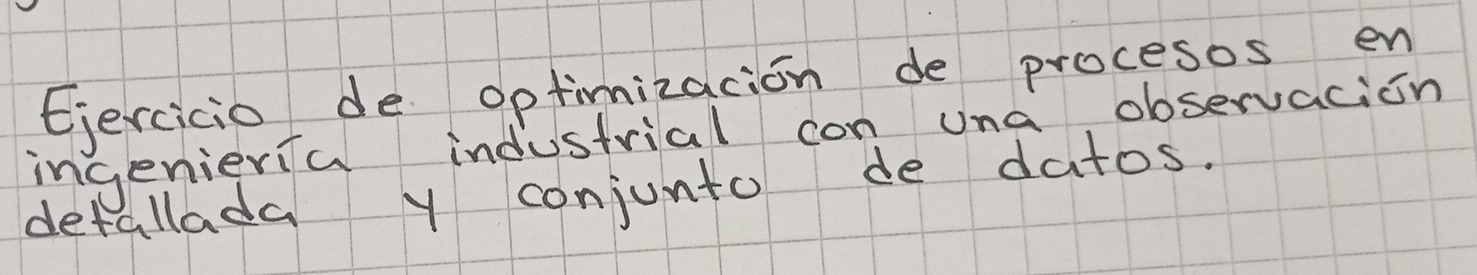 Ejercicio de optimización de procesos en
ingeniería industrial con una observación
detallada y conjunto de datos.